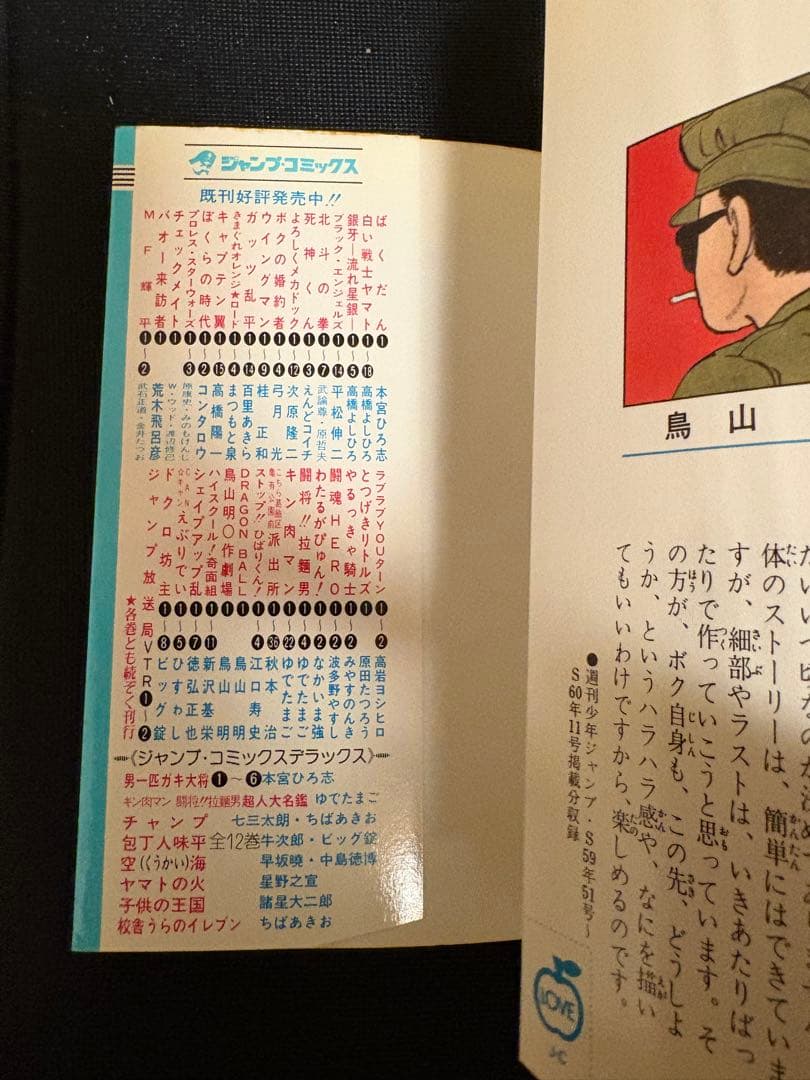 ジャンプ・コミックス
既刊好評発売中!!
ばくだん ❶ 本宮ひろ志
白い戦士ヤマト ❶〜⓲ 高橋よしひろ
銀牙―流れ星銀― ❶〜❺ 高橋よしひろ
ブラック・エンジェルズ ❶〜⓮ 平松伸二
北斗の拳 ❶〜❼ 武論尊・原哲夫
死神くん ❶〜❸ えんどコイチ
よろしくメカドック ❶〜⓬ 次原隆二
ボクの婚約者 ❶〜❹ 弓月光
ウイングマン ❶〜❾ 桂正和
ガッツ乱平 ❶〜⓮ 百里あきら
きまぐれオレンジ★ロード ❶〜❹ まつもと泉
キャプテン翼 ❶〜⓯ 高橋陽一
ぼくらの時代 ❶〜❷ コンタロウ
プロレス・スターウォーズ ❶〜❸ 原康史・みのもけんじ
チェックメイト ❶ W・ウッド・渡辺修己
バオー来訪者 ❶ 荒木飛呂彦
MF輝平 ❶〜❷ 武石正道・金井たつお
ラブラブYOUターン ❶〜❷ 高岩ヨシヒロ
とつげきリトルズ ❶ 原田たつろう
やるっきゃ騎士 ❶〜❷ みやすのんき
闘魂HERO ❶〜❷ 波多野やすし
わたるがぴゅん! ❶〜❷ なかいま強
闘将!!拉麺男 ❶〜❹ ゆでたまご
キン肉マン ❶〜㉒ ゆでたまご
こちら葛飾区亀有公園前派出所 ❶〜㊱ 秋本治
ストップ!!ひばりくん! ❶〜❹ 江口寿史
DRAGON BALL ❶ 鳥山明
鳥山明○作劇場 ❶ 鳥山明
ハイスクール!奇面組 ❶〜⓫ 新沢基栄
シェイプアップ乱 ❶〜❼ 徳弘正也
CANキャンえぶりでい ❶〜❺ ひすわし
ドクロ坊主 ❶〜❽ ビッグ錠
ジャンプ放送局VTR ❶〜❷
★各巻とも続ぞく刊行
《ジャンプ・コミックスデラックス》
男一匹ガキ大将 ❶〜❻ 本宮ひろ志
キン肉マン 闘将!!拉麺男 超人大名鑑 ゆでたまご
チャンプ 七三太朗・ちばあきお
包丁人味平 全12巻 牛次郎・ビッグ錠
空(くうかい)海 早坂暁・中島徳博
ヤマトの火 星野之宣
子供の王国 諸星大二郎
校舎うらのイレブン ちばあきお
鳥山
体のストーリーは、簡単にはできていま
すが、細部やラストは、いきあたりばっ
たりで作っていこうと思っています。そ
の方が、ボク自身も、この先、どうしよ
うか、というハラハラ感や、なにを描い
てもいいわけですから、楽しめるのです。
●週刊少年ジャンプ・S59年51号〜
S60年11号掲載分収録
LOVE
J・C